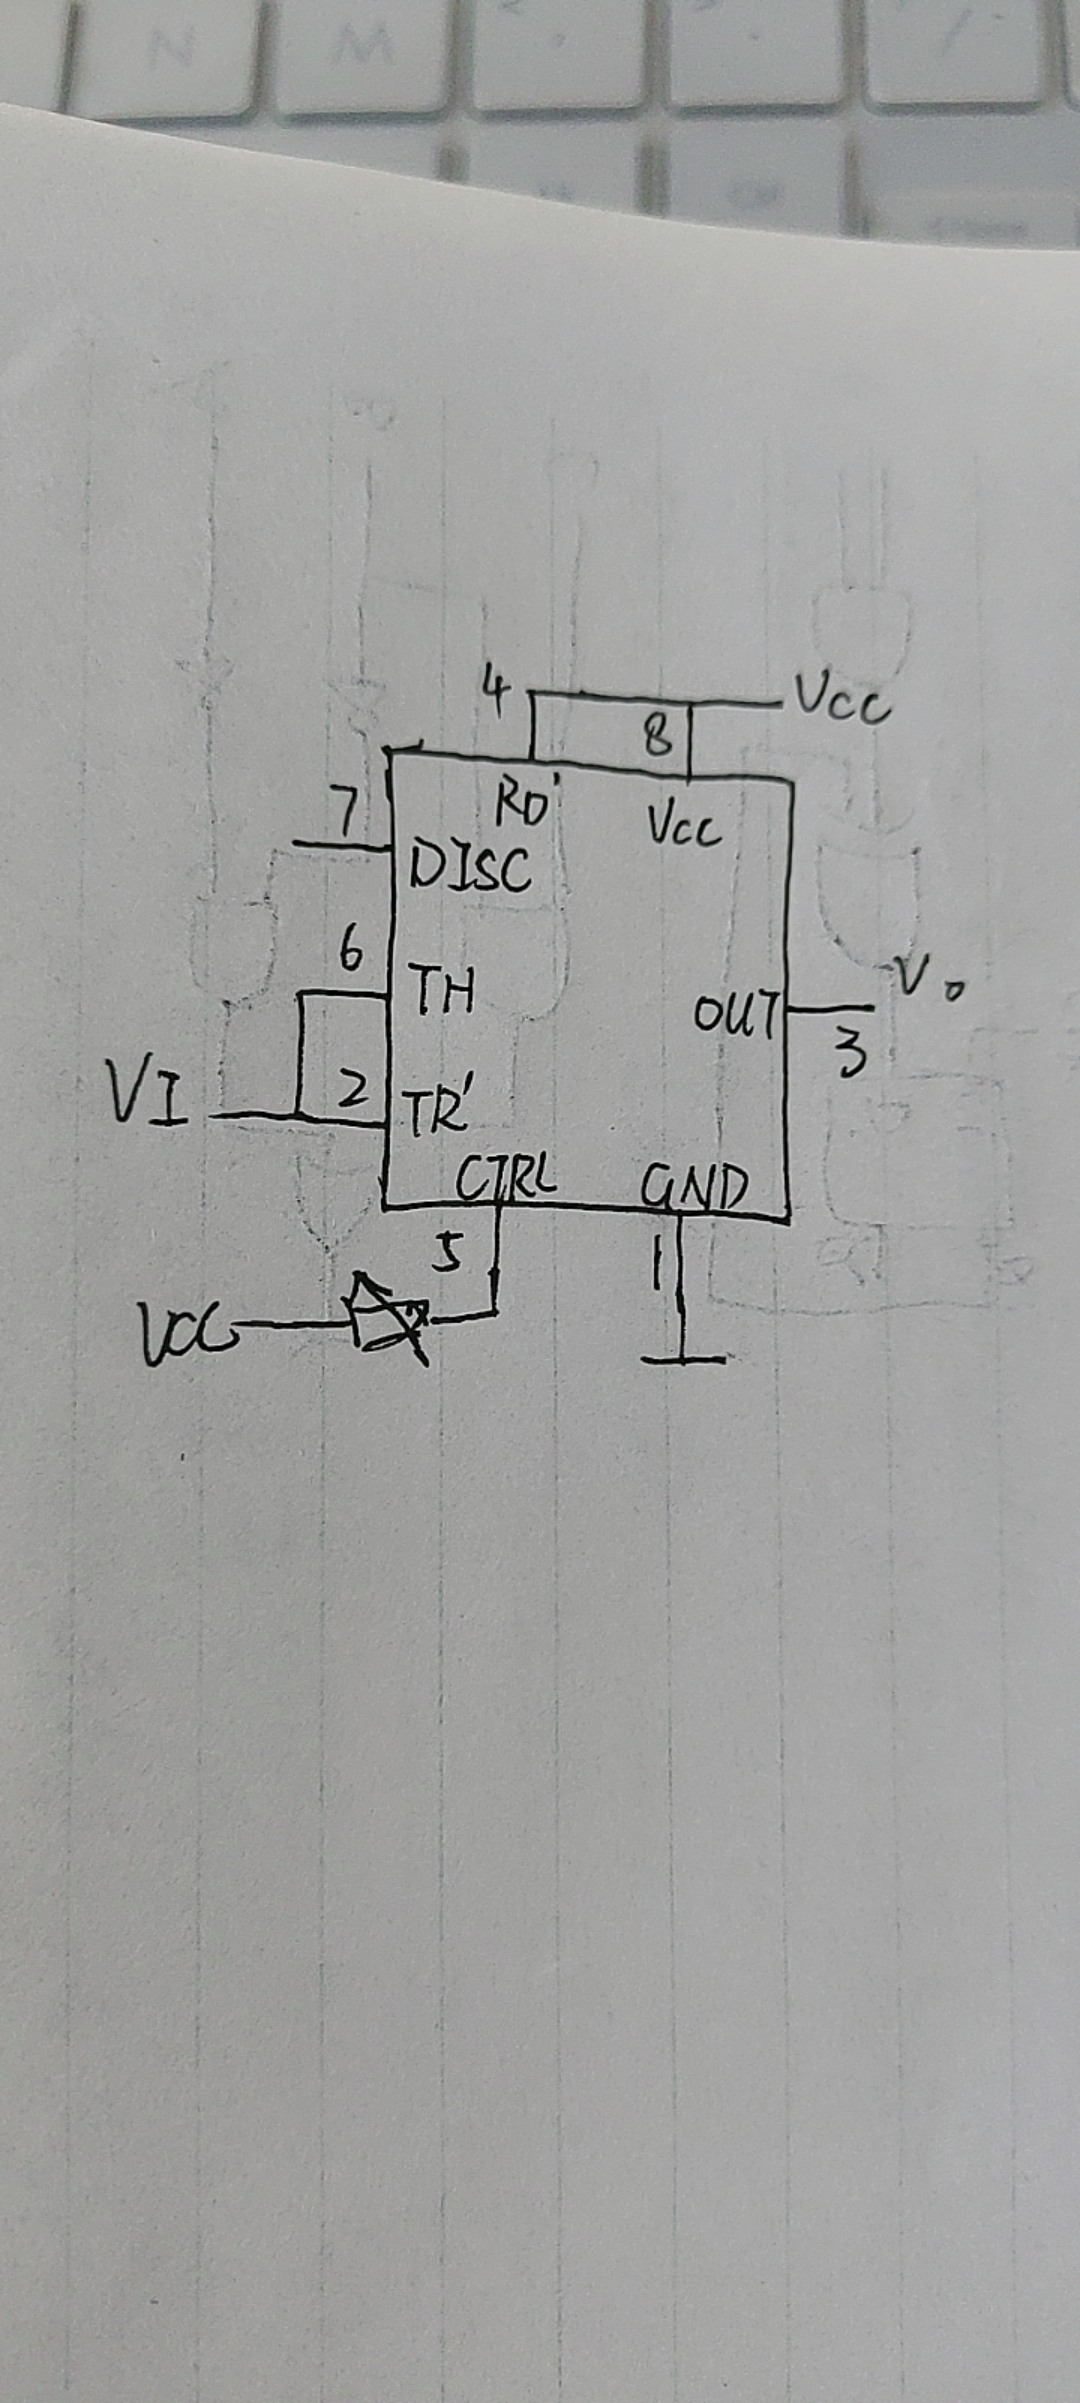 N M
4 VCC
8
7 RD' VCC
DISC
6 TH
OUT Vo
3
VI 2 TR'
CTRL GND
5 1
VCC